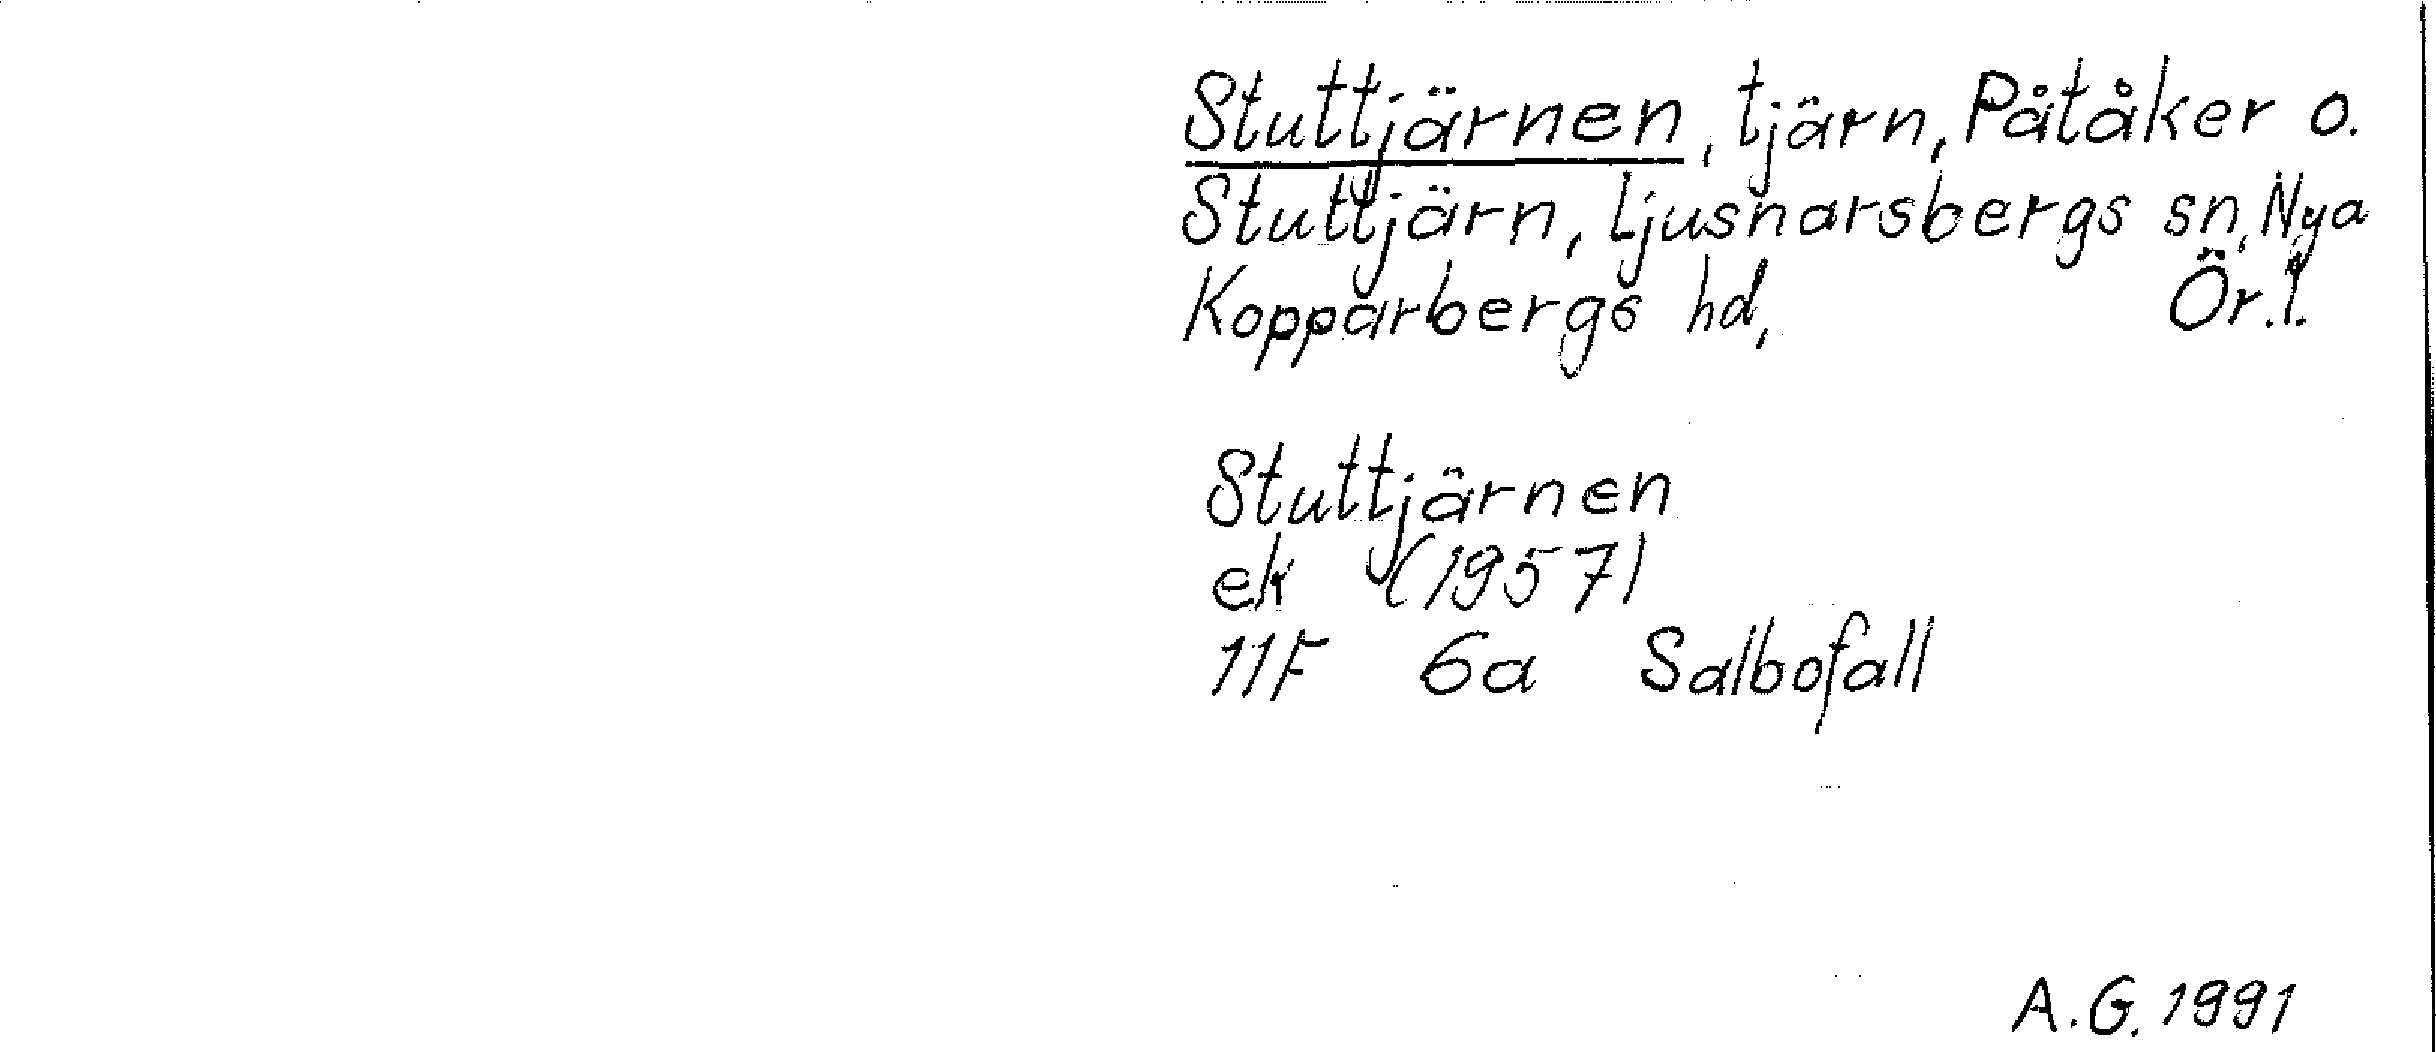 Stuttjärnen, tjärn, Påtåker o.
Stuttjärn, Ljusnarsbergs sn, Nya
Kopparbergs hd, Ör.l.
Stuttjärnen
ek (1957)
11F 6a Salbofall
A.G. 1991